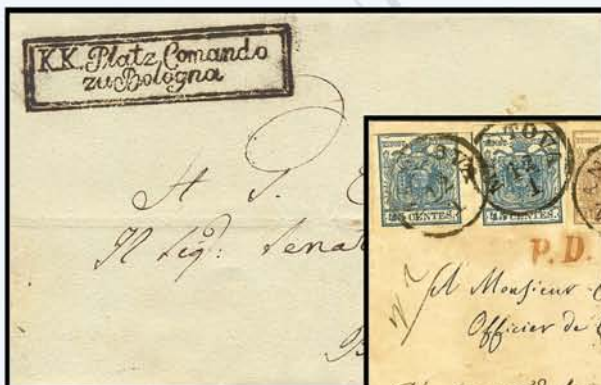 K.K. Platz Comando
zu Bologna
A S.
Il Sig: Senat
TOVA
45 CENTES.
45 CENTES.
P.D.
A Monsieur
Officier de